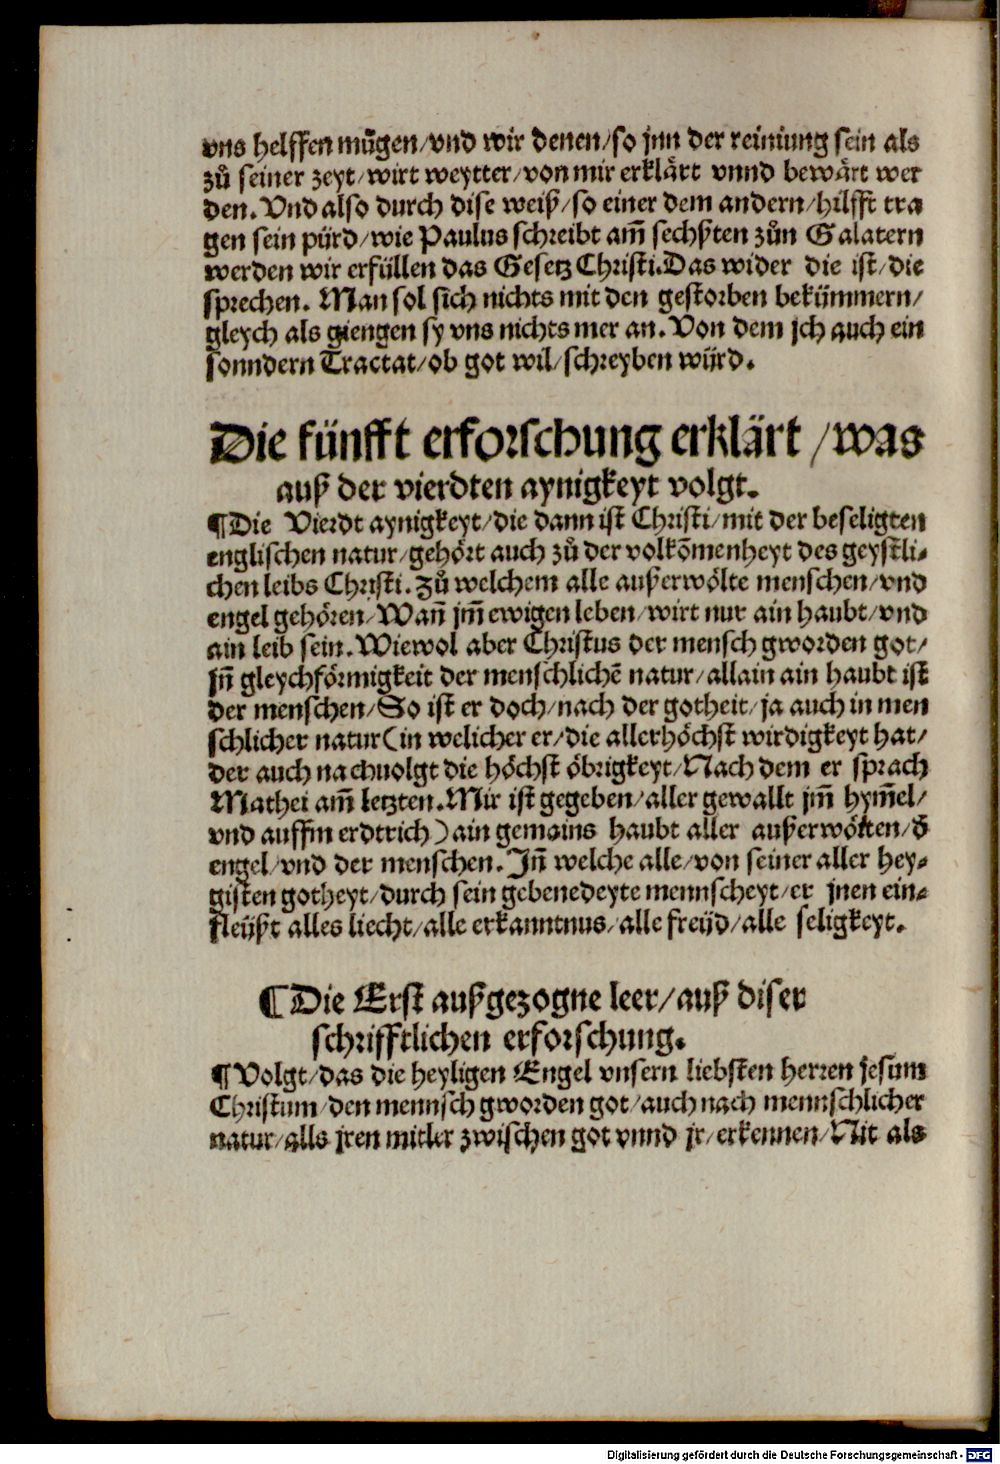 vns helffen mügen/vnd wir denen/so jnn der reiniung sein als
zů seiner zeyt/wirt weytter/von mir erklärt vnnd bewärt wer
den. Vnd also durch dise weiß/so einer dem andern/hilfft tra
gen sein pürd/wie Paulus schreibt am̃ sechßten zůn Galatern
werden wir erfüllen das Gesetz Christi. Das wider die ist/die
sprechen. Man sol sich nichts mit den gestorben bekümmern/
gleych als giengen sy vns nichts mer an. Von dem jch auch ein
sonndern Tractat/ob got wil/schreyben würd.
Die fünfft erforschung erklärt/was
auß der vierdten aynigkeyt volgt.
¶Die Vierdt aynigkeyt/die dann ist Christi/mit der beseligten
englischen natur/gehört auch zů der volkõmenheyt des geystli⸗
chen leibs Christi. Zů welchem alle außerwölte menschen/vnd
engel gehören/Wañ jm̃ ewigen leben/wirt nur ain haubt/vnd
ain leib sein. Wiewol aber Christus der mensch gworden got/
jñ gleychförmigkeit der menschlichẽ natur/allain ain haubt ist
der menschen/So ist er doch/nach der gotheit/ja auch in men
schlicher natur(in welicher er/die allerhöchst wirdigkeyt hat/
der auch nachuolgt die höchst öbrigkeyt/Nach dem er sprach
Mathei am̃ letzten. Mir ist gegeben/aller gewallt jm̃ hym̃el/
vnd auffm erdtrich)ain gemains haubt aller außerwölten/d̕
engel/vnd der menschen. Jñ welche alle/von seiner aller hey⸗
gisten gotheyt/durch sein gebenedeyte mennscheyt/er jnen ein⸗
fleüßt alles liecht/alle erkanntnus/alle freüd/alle seligkeyt.
¶Die Erst außgezogne leer/auß diser
schrifftlichen erforschung.
¶Volgt/das die heyligen Engel vnsern liebsten herren jesum
Christum/den mennsch gworden got/auch nach mennschlicher
natur/alls jren mitler zwischen got vnnd jr/erkennen/Nit als
Digitalisierung gefördert durch die Deutsche Forschungsgemeinschaft - DFG